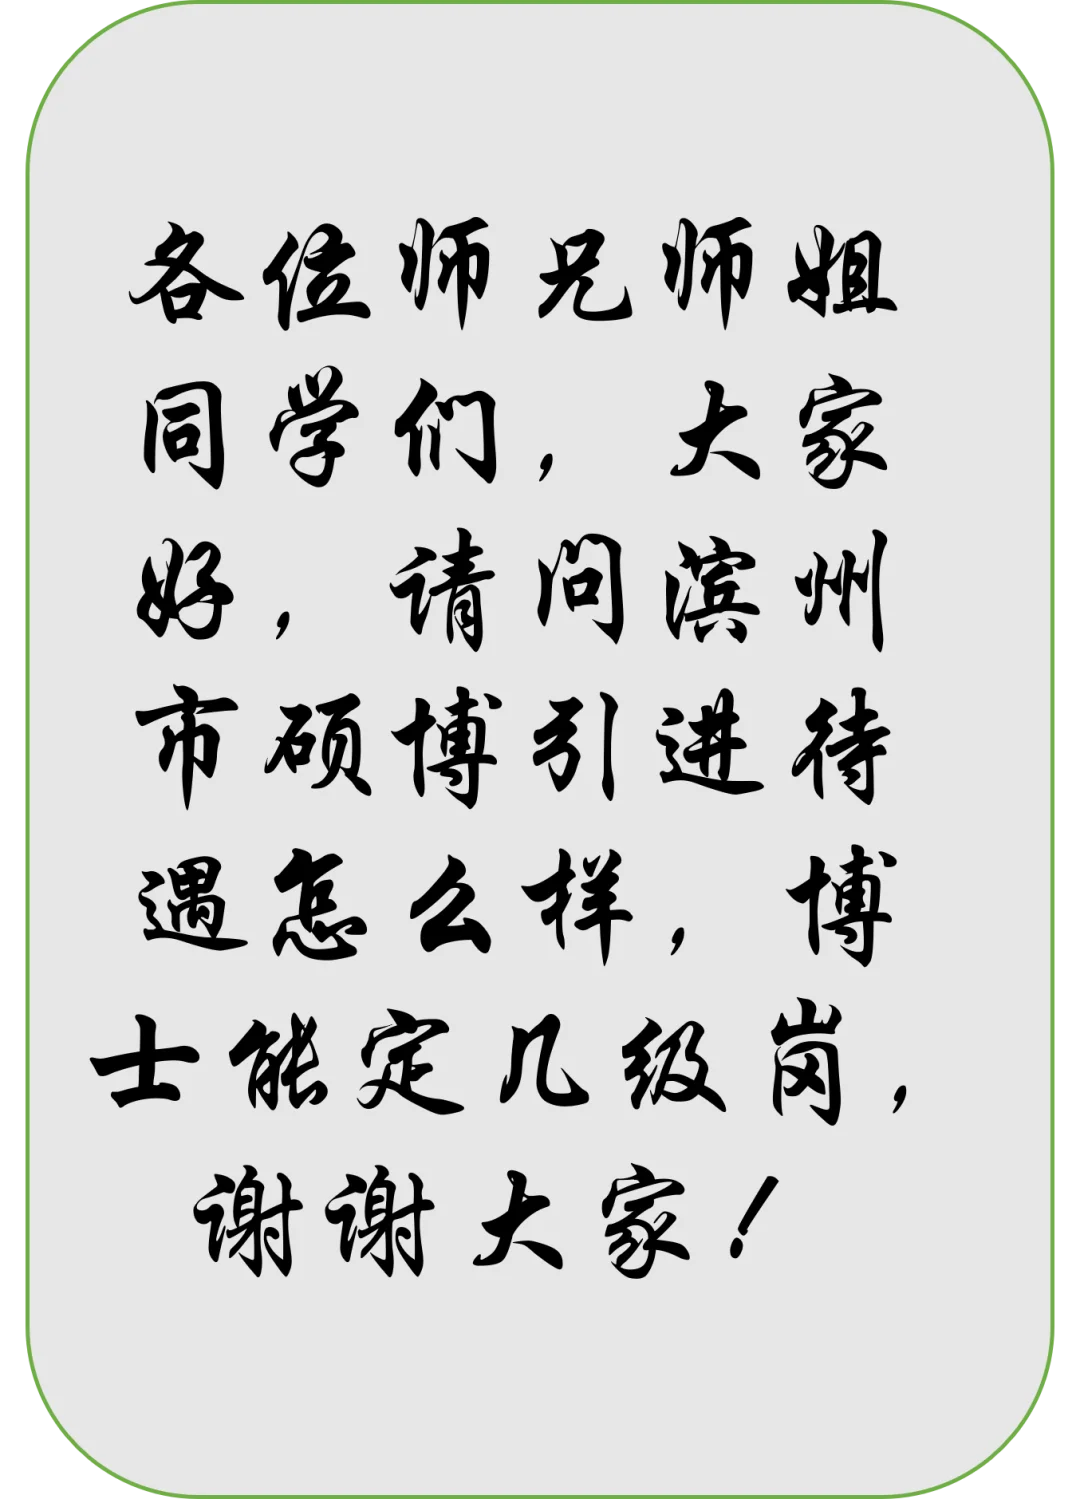 各位师兄师姐
同学们，大家
好，请问滨州
市硕博引进待
遇怎么样，博
士能定几级岗，
谢谢大家！